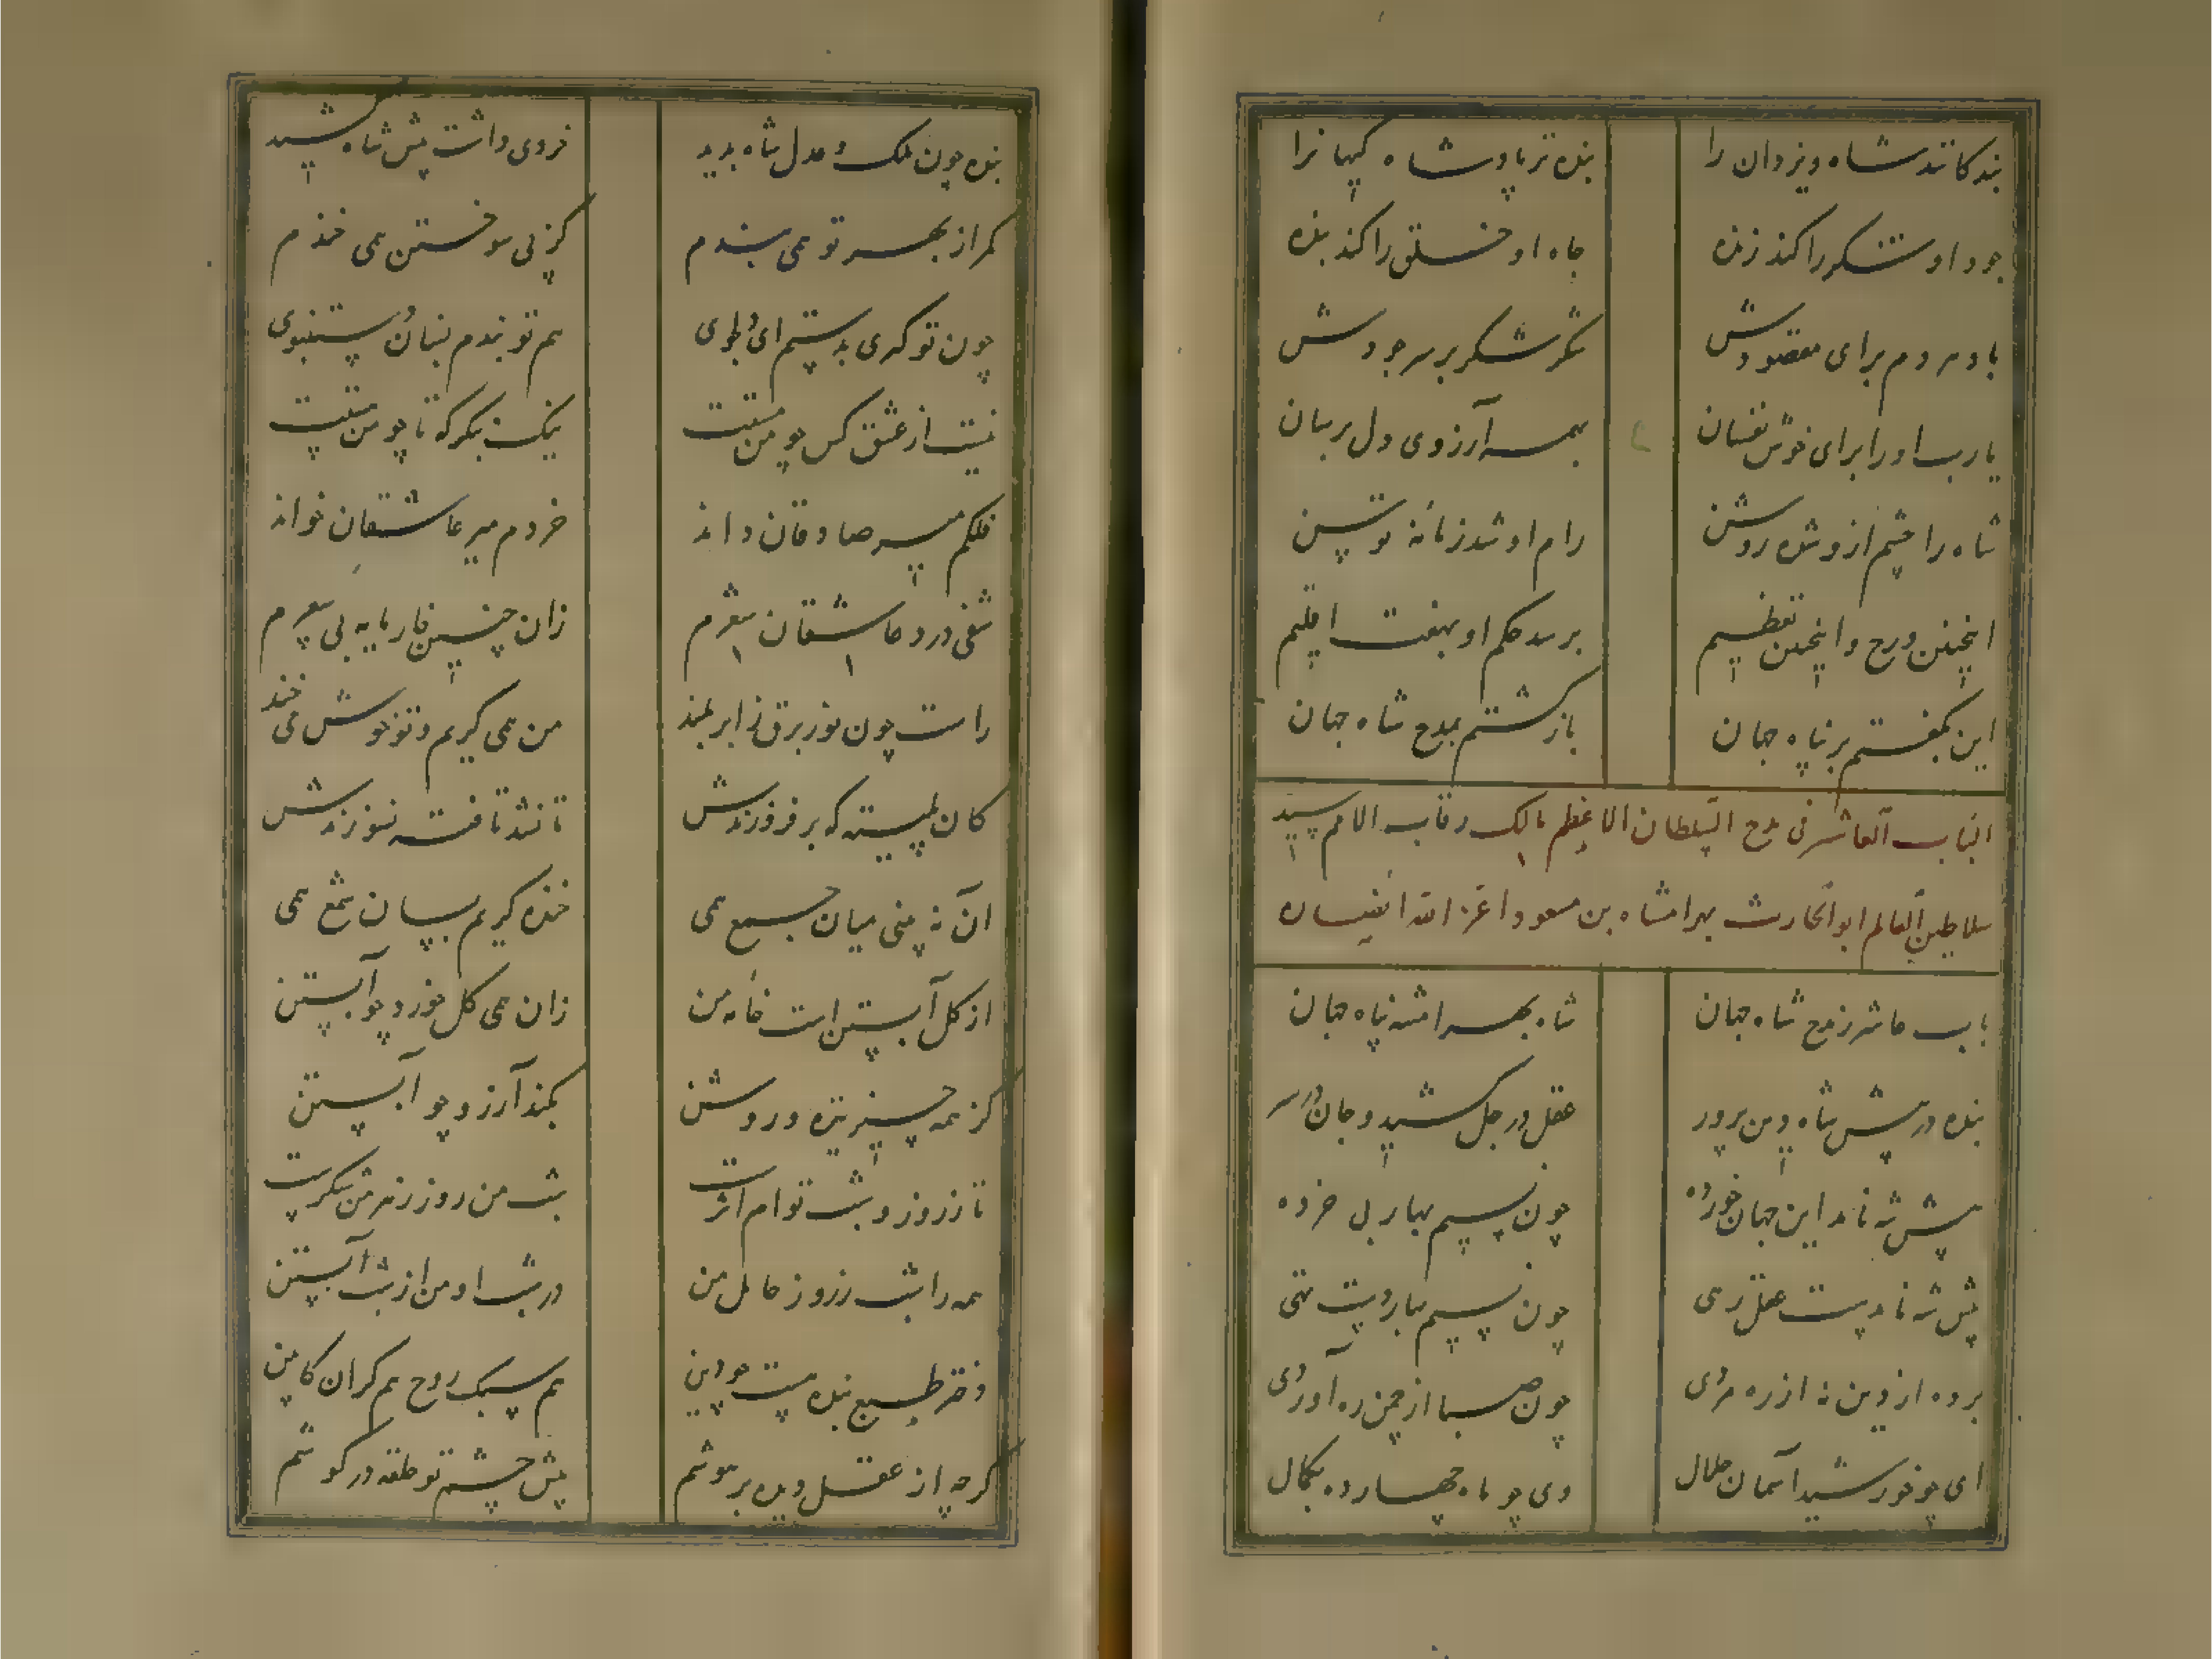 بندگانند شاه ویزدان را بنده تر پادشاه کیهانرا
جود او شکر را کند زنده جاه او خلق را کند بنده
باد مردم برای مقصودش شکر شکر بر سر جودش
یارب او را برای خوش نفسان بهمه آرزوی دل برسان
شاه را چشم ازو شده روشن رام او شد زمانهٔ توسن
اینچنین مدح و اینچنین تعظیم برسد حکم او بهفت اقلیم
این بگفتم بر پناه جهان بازگشتم بمدح شاه جهان
الباب العاشر فی مدح السلطان الاعظم مالک رقاب الامم سید
سلاطین العالم ابوالحارث بهرامشاه بن مسعود اعز الله انصاره
باب عاشر ز مدح شاه جهان شاه بهرامشه پناه جهان
بنده در پیش شاه دین پرور عقل در جل کشید و جان در
پیش شه نامد این جهان خورده چون نسیم بهار بی خرده
پیش شه نامدست عقل رهی چون نسیم بهار دست تهی
برده از دین نه از ره مردی چون صبا از چمن ره آوردی
ای چو خورشید آسمان جلال وی چو ماه چهارده بکمال
بنده چون ملک و عدل شاه بدید خردی داشت پیش شاه کشید
کمر از بهر تو همی بندم کز پی سوختن همی خندم
چون تو کردی بدستم ای دلجوی هم تو بندم بسان دستنبوی
نیست از عشق کس چو من مستت نیک بنگر که تا چو من هستت
فلکم میر صادقان داند خردم میر عاشقان خواند
شفی درد عاشقان شعرم زان چنین نار مایه بی سعرم
راست چون نور برق ز ابر بلند من همی گریم و تو خوش می خند
کان نبیسته که بر فروزندش تا نشد تافته نسوزندش
آن نه بینی میان جمع همی خنده گریم بسان شمع همی
از گل آبستن است خامهٔ من زان همی گل خورد چو آبستن
کز همه چیز تیره و روشن بکند آرزو چو آبستن
تا ز روز و شب توام اثرست شب من روز روز من سکرست
همه را شب ز روز حامل من در شب او من از شب آبستن
دختر طبع بنده هست چو دین هم سبک روح هم گران کابین
گرچه از عقل و دیده بر هوشم پیش چشم تو حلقه در گوشم